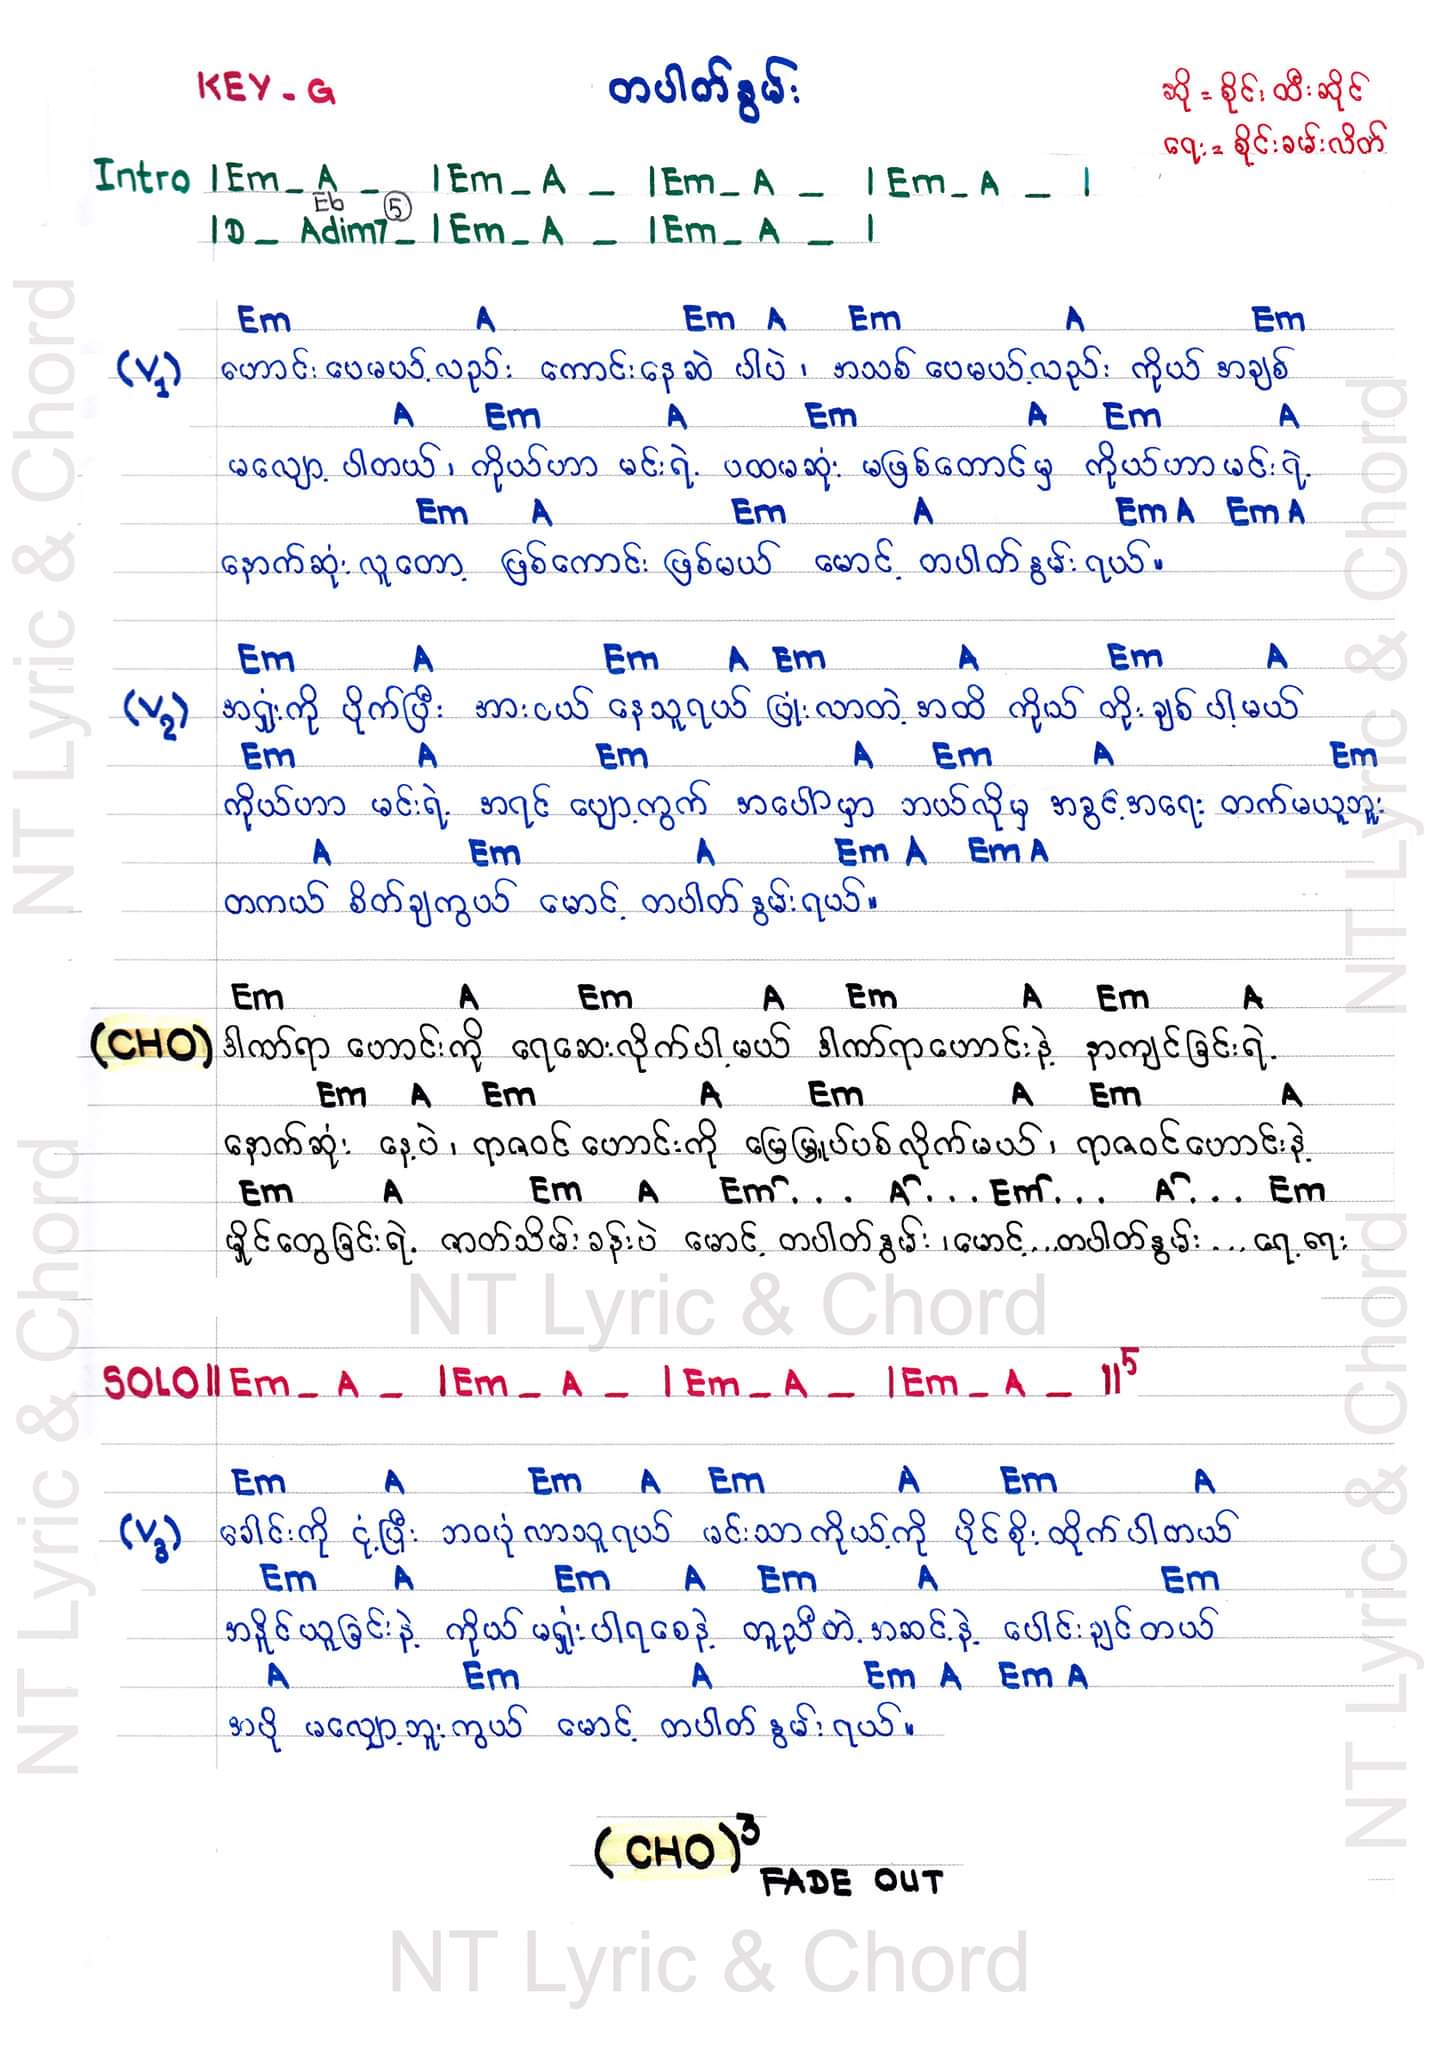 KEY - G
တပါတ်နွမ်း
ဆို = စိုင်းထီးဆိုင်
ရေး = စိုင်းခမ်းလိတ်
Intro | Em _ A _ | Em _ A _ | Em _ A _ | Em _ A _ |
Eb 5
| D _ Adim7 _ | Em _ A _ | Em _ A _ |
Em A Em A Em A Em
(V1) ဟောင်းပေမယ့်လည်း ကောင်းနေဆဲ ပါပဲ ၊ အသစ် ပေမယ့်လည်း ကိုယ် အချစ်
A Em A Em A Em A
မလျော့ ပါတယ် ၊ ကိုယ်ဟာ မင်းရဲ့ ပထမဆုံး မဖြစ်တောင်မှ ကိုယ်ဟာ မင်းရဲ့
Em A Em A Em A Em A
နောက်ဆုံးလူတော့ ဖြစ်ကောင်း ဖြစ်မယ် မောင့် တပါတ်နွမ်းရယ် ။
Em A Em A Em A Em A
(V2) အရှုံးကို ပိုက်ပြီး အားငယ် နေသူရယ် ပြုံးလာတဲ့ အထိ ကိုယ် တိုးချစ် ပါ့မယ်
Em A Em A Em A Em
ကိုယ်ဟာ မင်းရဲ့ အရင် ပျော့ကွက် အပေါ်မှာ ဘယ်လိုမှ အခွင့်အရေး တက်မယူဘူး
A Em A Em A Em A
တကယ် စိတ်ချကွယ် မောင့် တပါတ်နွမ်းရယ် ။
Em A Em A Em A Em A
(CHO) ဒါဏ်ရာ ဟောင်းကို ရေဆေးလိုက်ပါ့မယ် ဒါဏ်ရာဟောင်းနဲ့ နာကျင်ခြင်းရဲ့
Em A Em A Em A Em A
နောက်ဆုံး နေ့ပဲ ၊ ရာဇဝင်ဟောင်းကို မြေမြှုပ်ပစ်လိုက်မယ် ၊ ရာဇဝင်ဟောင်းနဲ့
Em A Em A Em... A... Em... A... Em
မှိုင်တွေခြင်းရဲ့ ဇာတ်သိမ်းခန်းပဲ မောင့် တပါတ်နွမ်း ၊ မောင့်...တပါတ်နွမ်း ... ရေ့ရေး
SOLO || Em _ A _ | Em _ A _ | Em _ A _ | Em _ A _ ||5
Em A Em A Em A Em A
(V3) ခေါင်းကို ငုံ့ပြီး ဘဝပုံလာသူရယ် မင်းသာကိုယ့်ကို ပိုင်စိုးထိုက်ပါတယ်
Em A Em A Em A Em
အနိုင်ယူခြင်းနဲ့ ကိုယ် မရှုံးပါရစေနဲ့ တူညီတဲ့အဆင့်နဲ့ ပေါင်းချင်တယ်
A Em A Em A Em A
အပို မလျှော့ဘူးကွယ် မောင့် တပါတ်နွမ်းရယ် ။
(CHO)3
FADE OUT
NT Lyric & Chord
NT Lyric & Chord
NT Lyric & Chord
NT Lyric & Chord
NT Lyric & Chord
NT Lyric & Chord